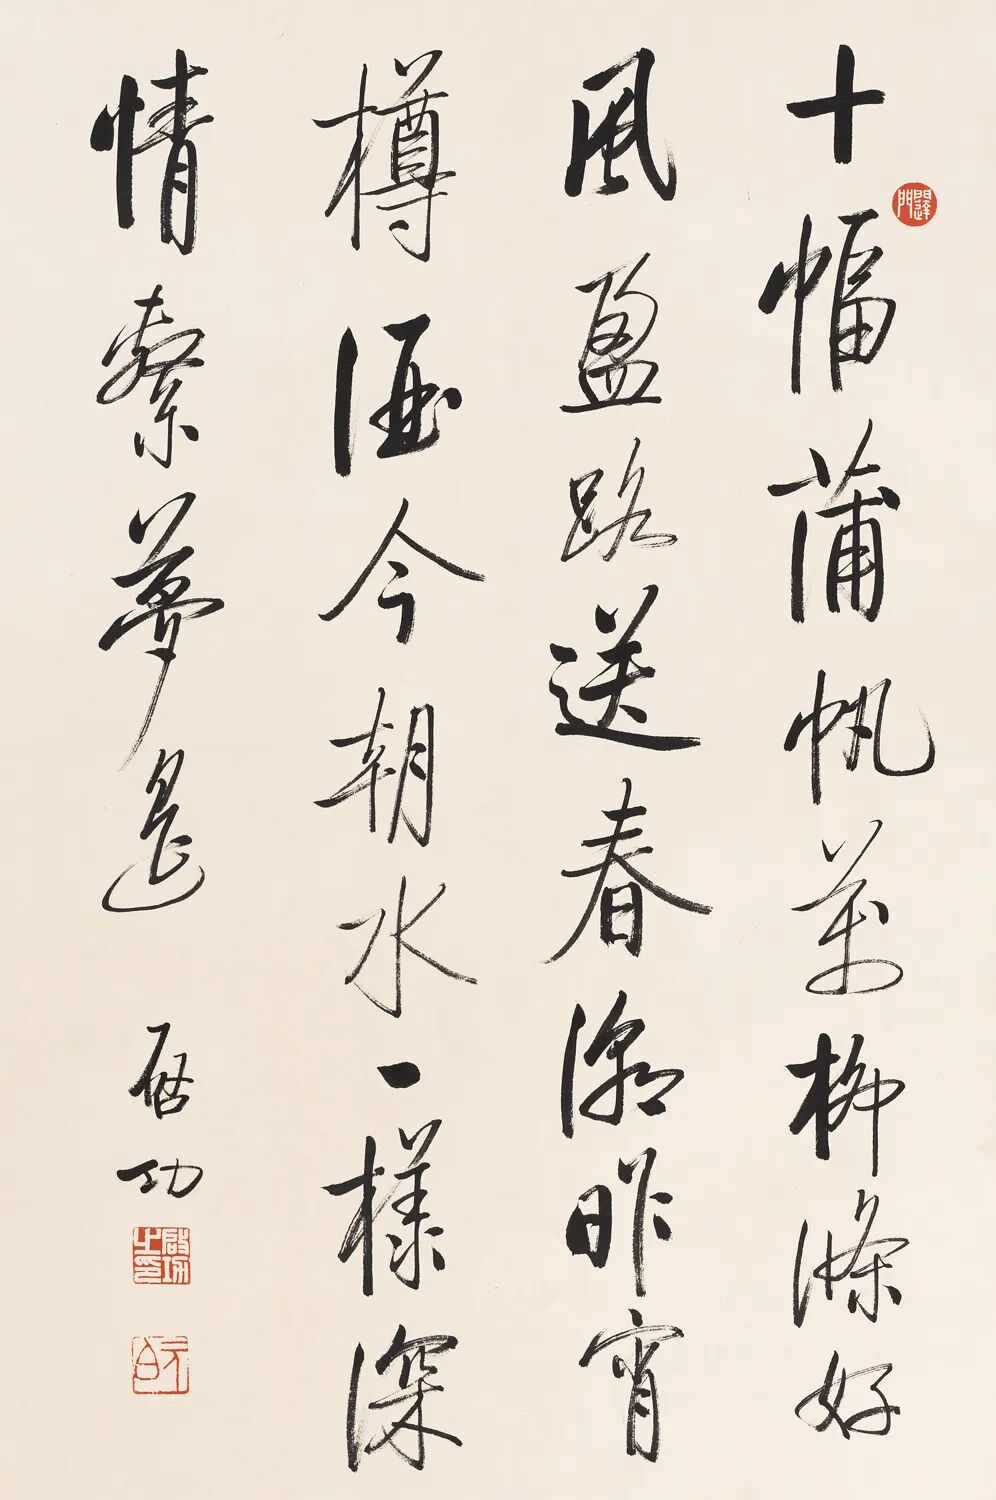 十幅蒲帆萬柳條好
風盈路送春潮昨宵
樽酒今朝水一樣深
情繫夢遙
启功
啟功之印
元白